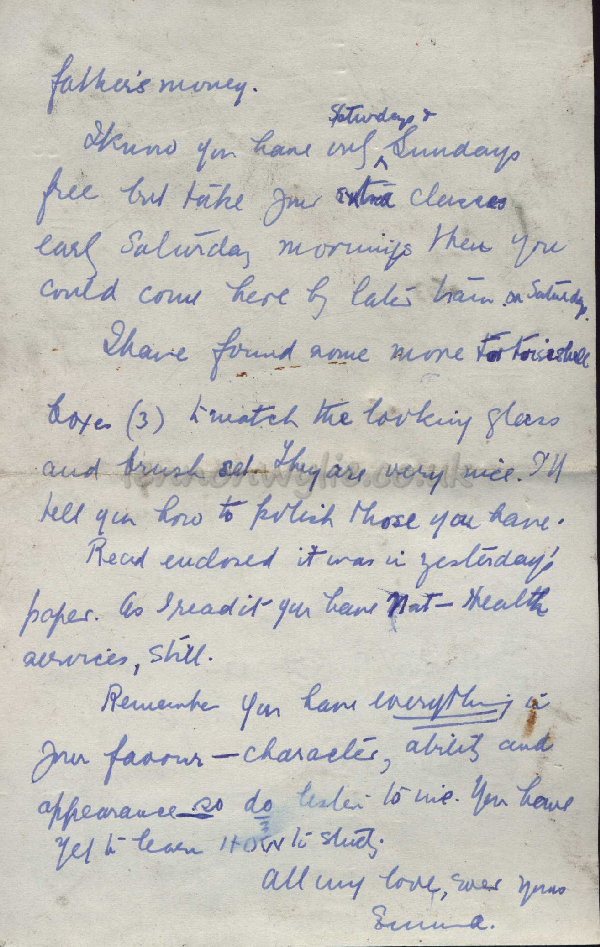 father's money.
I know you have only Saturdays & Sundays
free but take your extra classes
early Saturday mornings then you
could come here by later train on Saturday.
I have found some more tortoiseshell
boxes (3) to match the looking glass
and brush set. They are very nice. I'll
tell you how to polish those you have.
Read enclosed it was in yesterday's
paper. As I read it you have Nat— Health
services, still.
Remember you have everything in
your favour — character, ability and
appearance so do listen to me. You have
yet to learn HOW to study.
All my love, ever yours
Emma.